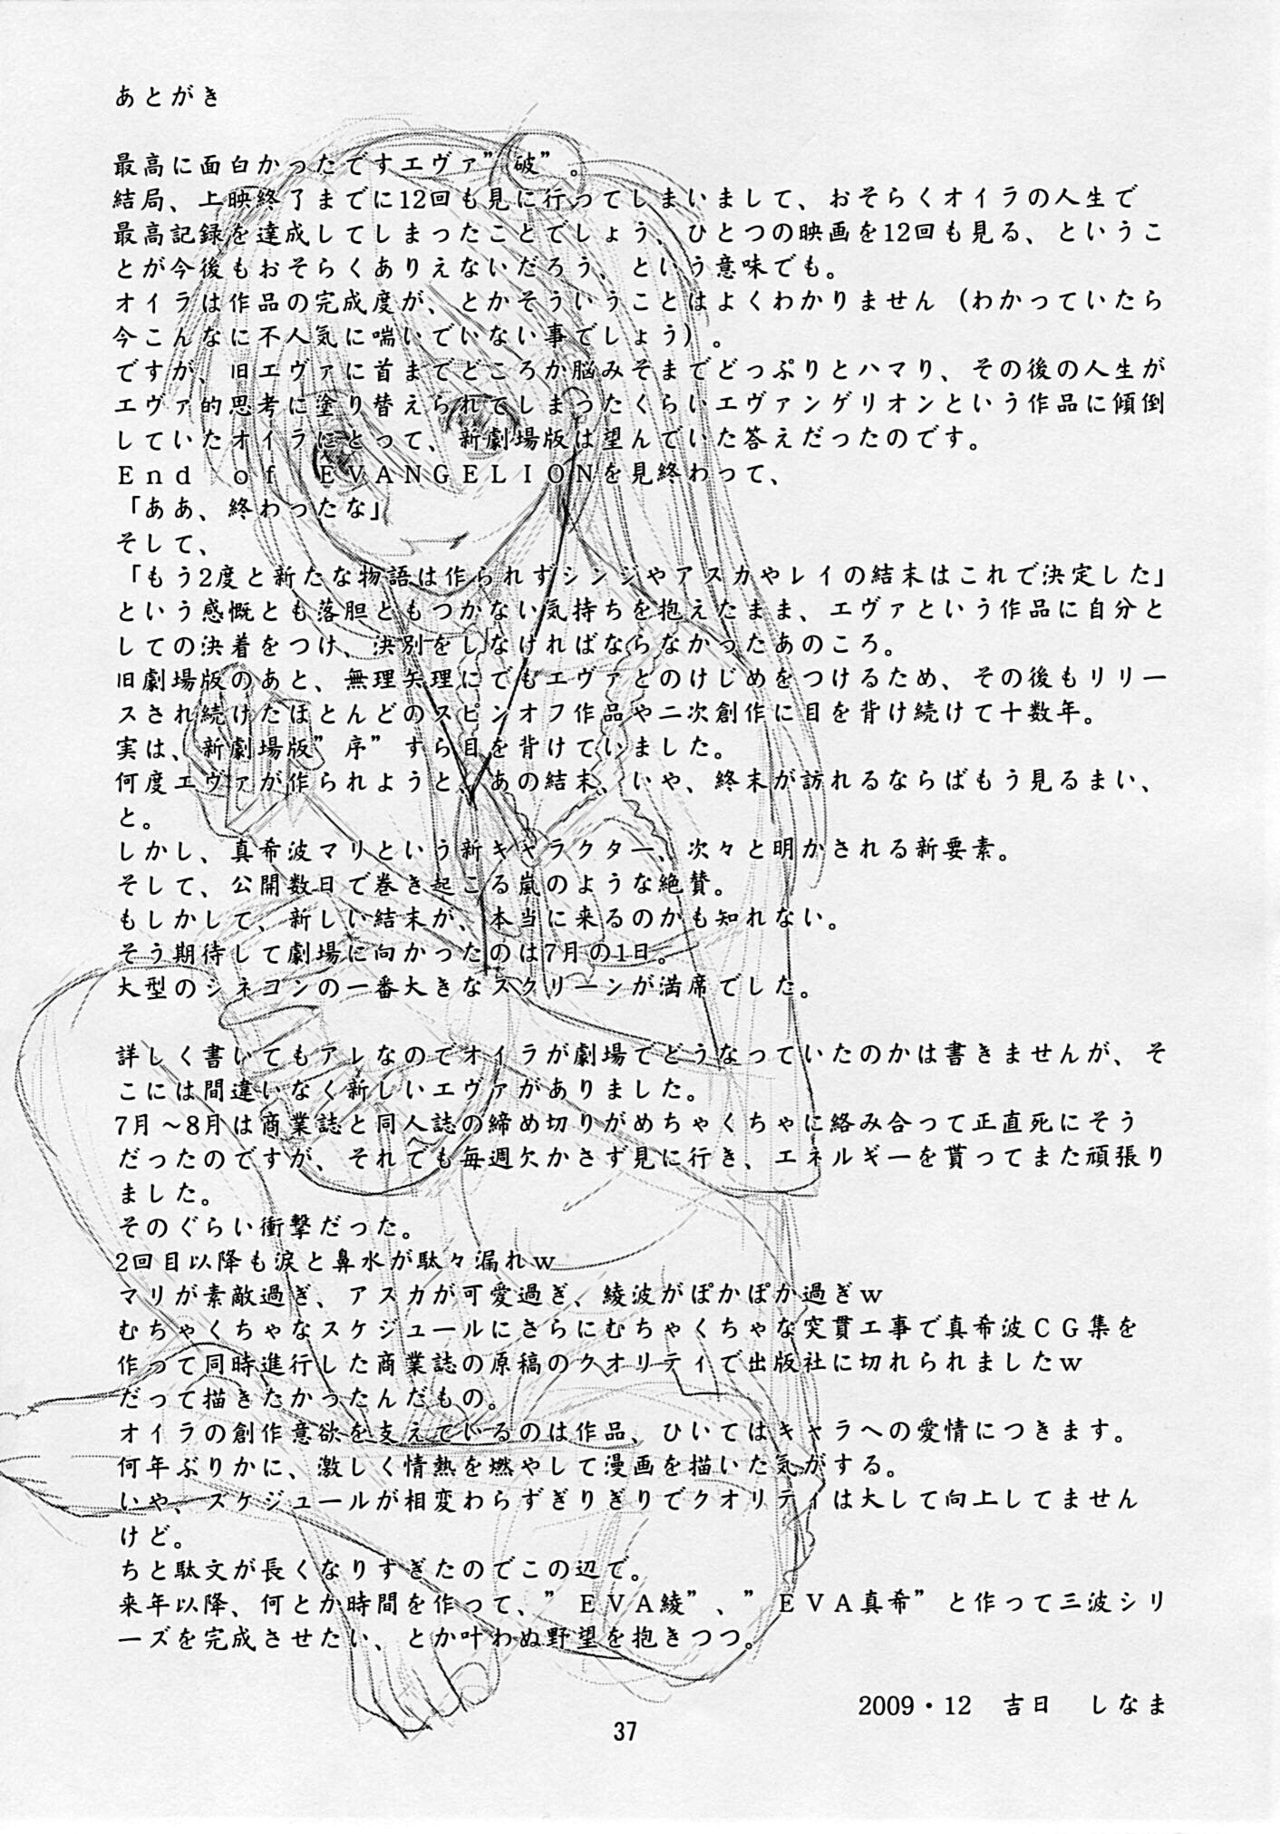 あとがき
最高に面白かったですエヴァ”破”。
結局、上映終了までに12回も見に行ってしまいまして、おそらくオイラの人生で
最高記録を達成してしまったことでしょう、ひとつの映画を12回も見る、というこ
とが今後もおそらくありえないだろう、という意味でも。
オイラは作品の完成度が、とかそういうことはよくわかりません（わかっていたら
今こんなに不人気に喘いでいない事でしょう）。
ですが、旧エヴァに首までどころか脳みそまでどっぷりとハマり、その後の人生が
エヴァ的思考に塗り替えられてしまったくらいエヴァンゲリオンという作品に傾倒
していたオイラにとって、新劇場版は望んでいた答えだったのです。
Ｅｎｄ　ｏｆ　ＥＶＡＮＧＥＬＩＯＮを見終わって、
「ああ、終わったな」
そして、
「もう2度と新たな物語は作られずシンジやアスカやレイの結末はこれで決定した」
という感慨とも落胆ともつかない気持ちを抱えたまま、エヴァという作品に自分と
しての決着をつけ、決別をしなければならなかったあのころ。
旧劇場版のあと、無理矢理にでもエヴァとのけじめをつけるため、その後もリリー
スされ続けたほとんどのスピンオフ作品や二次創作に目を背け続けて十数年。
実は、新劇場版”序”すら目を背けていました。
何度エヴァが作られようと、あの結末、いや、終末が訪れるならばもう見るまい、
と。
しかし、真希波マリという新キャラクター、次々と明かされる新要素。
そして、公開数日で巻き起こる嵐のような絶賛。
もしかして、新しい結末が、本当に来るのかも知れない。
そう期待して劇場に向かったのは7月の1日。
大型のシネコンの一番大きなスクリーンが満席でした。
詳しく書いてもアレなのでオイラが劇場でどうなっていたのかは書きませんが、そ
こには間違いなく新しいエヴァがありました。
7月～8月は商業誌と同人誌の締め切りがめちゃくちゃに絡み合って正直死にそう
だったのですが、それでも毎週欠かさず見に行き、エネルギーを貰ってまた頑張り
ました。
そのぐらい衝撃だった。
2回目以降も涙と鼻水が駄々漏れｗ
マリが素敵過ぎ、アスカが可愛過ぎ、綾波がぽかぽか過ぎｗ
むちゃくちゃなスケジュールにさらにむちゃくちゃな突貫工事で真希波ＣＧ集を
作って同時進行した商業誌の原稿のクオリティで出版社に切れられましたｗ
だって描きたかったんだもの。
オイラの創作意欲を支えているのは作品、ひいてはキャラへの愛情につきます。
何年ぶりかに、激しく情熱を燃やして漫画を描いた気がする。
いや、スケジュールが相変わらずぎりぎりでクオリティは大して向上してません
けど。
ちと駄文が長くなりすぎたのでこの辺で。
来年以降、何とか時間を作って、”ＥＶＡ綾”、”ＥＶＡ真希”と作って三波シリ
ーズを完成させたい、とか叶わぬ野望を抱きつつ。
2009・12　吉日　しなま
37